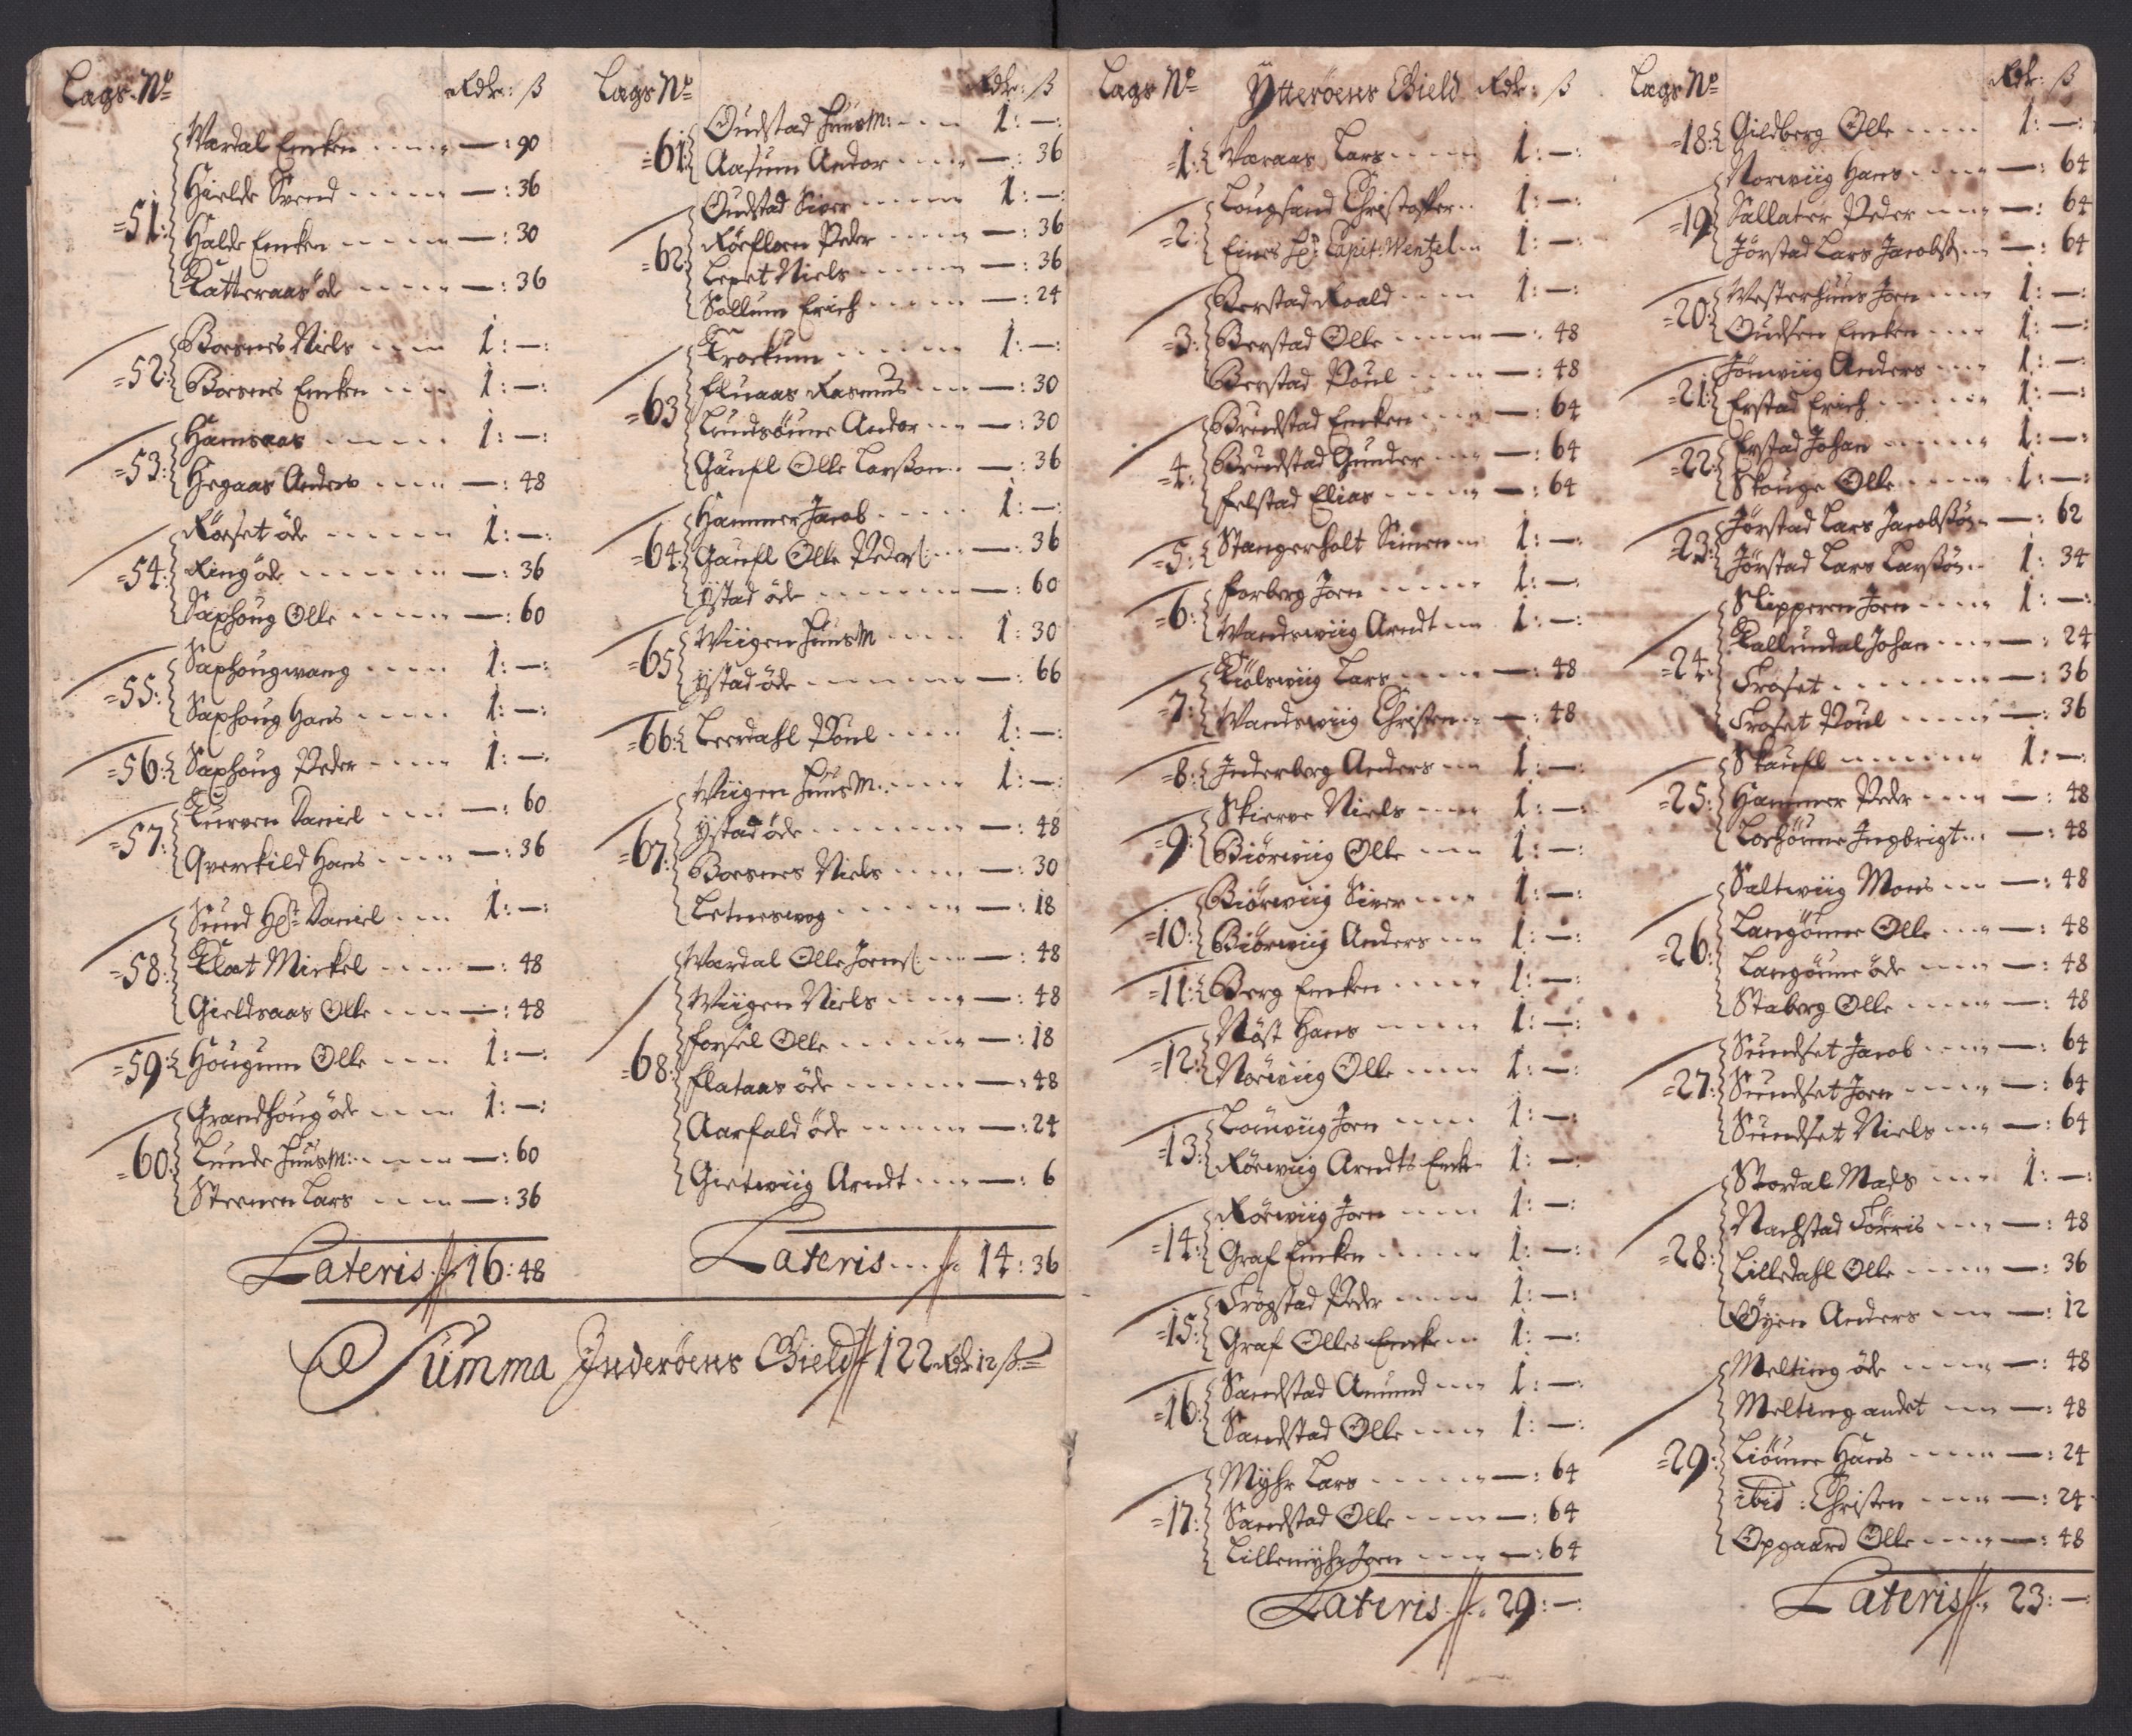 Lags N° Rdr: ß
=51: Wardal Encken — : 90
Hielde Svend — : 36
Halde Encken — : 30
Katteraas öde — : 36
=52: Borsnes Niels 1 : —
Borsnes Encken 1 : —
=53: Hamsaas 1 : —
Hegaas Anders — : 48
=54: Röeset öde 1 : —
Ring öde — : 36
Saxhoug Olle — : 60
=55: Saxhougwang 1 : —
Saxhoug Hans 1 : —
=56: Saxhoug Peder 1 : —
=57: Kurven Daniel — : 60
Qverkild Hans — : 36
=58: Sund Hr Daniel 1 : —
Kloet Mickel — : 48
Gieldsaas Olle — : 48
=59: Hougum Olle 1 : —
=60: Grandhoug öde 1 : —
Lunde Huus M: — : 60
Steenen Lars — : 36
Lateris 16 : 48
Lags N° Rdr: ß
=61: Oudstad Huus M: 1 : —
Aasum Andor — : 36
=62: Oudstad Siver 1 : —
Röefloen Peder — : 36
Leeet Niels — : 36
Sollum Erich — : 24
=63: Krockum 1 : —
Fluaas Rasmus — : 30
Lundsöune Andor — : 30
Gaufl Olle Larßon — : 36
=64: Hammer Jacob 1 : —
Gaufl Olle Peders: — : 36
Ystad öde — : 60
=65: Wiigen Huus M 1 : 30
Ystad öde — : 66
=66: Leerdahl Poul 1 : —
=67: Wiigen Huus M. 1 : —
Ystad öde — : 48
Borsnes Niels — : 30
Letneswog — : 18
=68: Wardal Olle Joens: — : 48
Wiigen Niels — : 48
Forsel Olle — : 18
Flataas öde — : 48
Aarfald öde — : 24
Gietwiig Arndt — : 6
Lateris 14 : 36
Summa Inderöens Gield 122 Rdr 12 ß
Lags N° Ytteröens Gield Rdr: ß
=1: Waraas Lars 1 : —
=2: Lougsand Christopher 1 : —
Eines Hr: Capit: Wentzel 1 : —
=3: Berstad Roald 1 : —
Berstad Olle — : 48
Berstad Poul — : 48
=4: Brustad Encken — : 64
Brustad Gunder — : 64
Felstad Elias — : 64
=5: Stangerholt Simen 1 : —
=6: Forberg Joen 1 : —
Wandswiig Arndt 1 : —
=7: Kiölswiig Lars — : 48
Wandswiig Christen — : 48
=8: Inderberg Anders 1 : —
=9: Skierve Niels 1 : —
Biörwiig Olle 1 : —
=10: Biörwiig Siver 1 : —
Biörwiig Anders 1 : —
=11: Berg Encken 1 : —
=12: Nöst Hans 1 : —
Nörwiig Olle 1 : —
=13: Louwiig Joen 1 : —
Rörwiig Arndts Enck 1 : —
=14: Rörwiig Joen 1 : —
Graf Encken 1 : —
=15: Trögstad Peder 1 : —
Graf Olles Encken 1 : —
=16: Sandstad Amund 1 : —
Sandstad Olle 1 : —
=17: Myhr Lars — : 64
Sandstad Olle — : 64
Lillemyhr Joen — : 64
Lateris 29 : —
Lags N° Rdr: ß
=18: Gildberg Olle 1 : —
=19: Norwiig Hans — : 64
Sallater Peder — : 64
Jörstad Lars Jacobß — : 64
=20: Westerhuus Joen 1 : —
Oudsen Encken 1 : —
=21: Jörnwiig Anders 1 : —
Erstad Erich 1 : —
=22: Erstad Johan 1 : —
Skouge Olle 1 : —
=23: Jörstad Lars Jacobßön — : 62
Jörstad Lars Larßön 1 : 34
=24: Skipperen Joen 1 : —
Kallundal Johan — : 24
Troset — : 36
Troset Poul — : 36
=25: Skaufl 1 : —
Hammer Peder — : 48
Loehöune Ingbrigt — : 48
=26: Saltwiig Mons — : 48
Langöune Olle — : 48
Langöune öde — : 48
Staberg Olle — : 48
=27: Sundset Jacob — : 64
Sundset Joen — : 64
Sundset Niels — : 64
=28: Stordal Mads 1 : —
Nachstad Torris — : 48
Lilledahl Olle — : 36
Öyen Anders — : 12
=29: Melting öde — : 48
Melting andet — : 48
Liöune Hans — : 24
ibid : Christen — : 24
Opgaard Olle — : 48
Lateris 23 : —